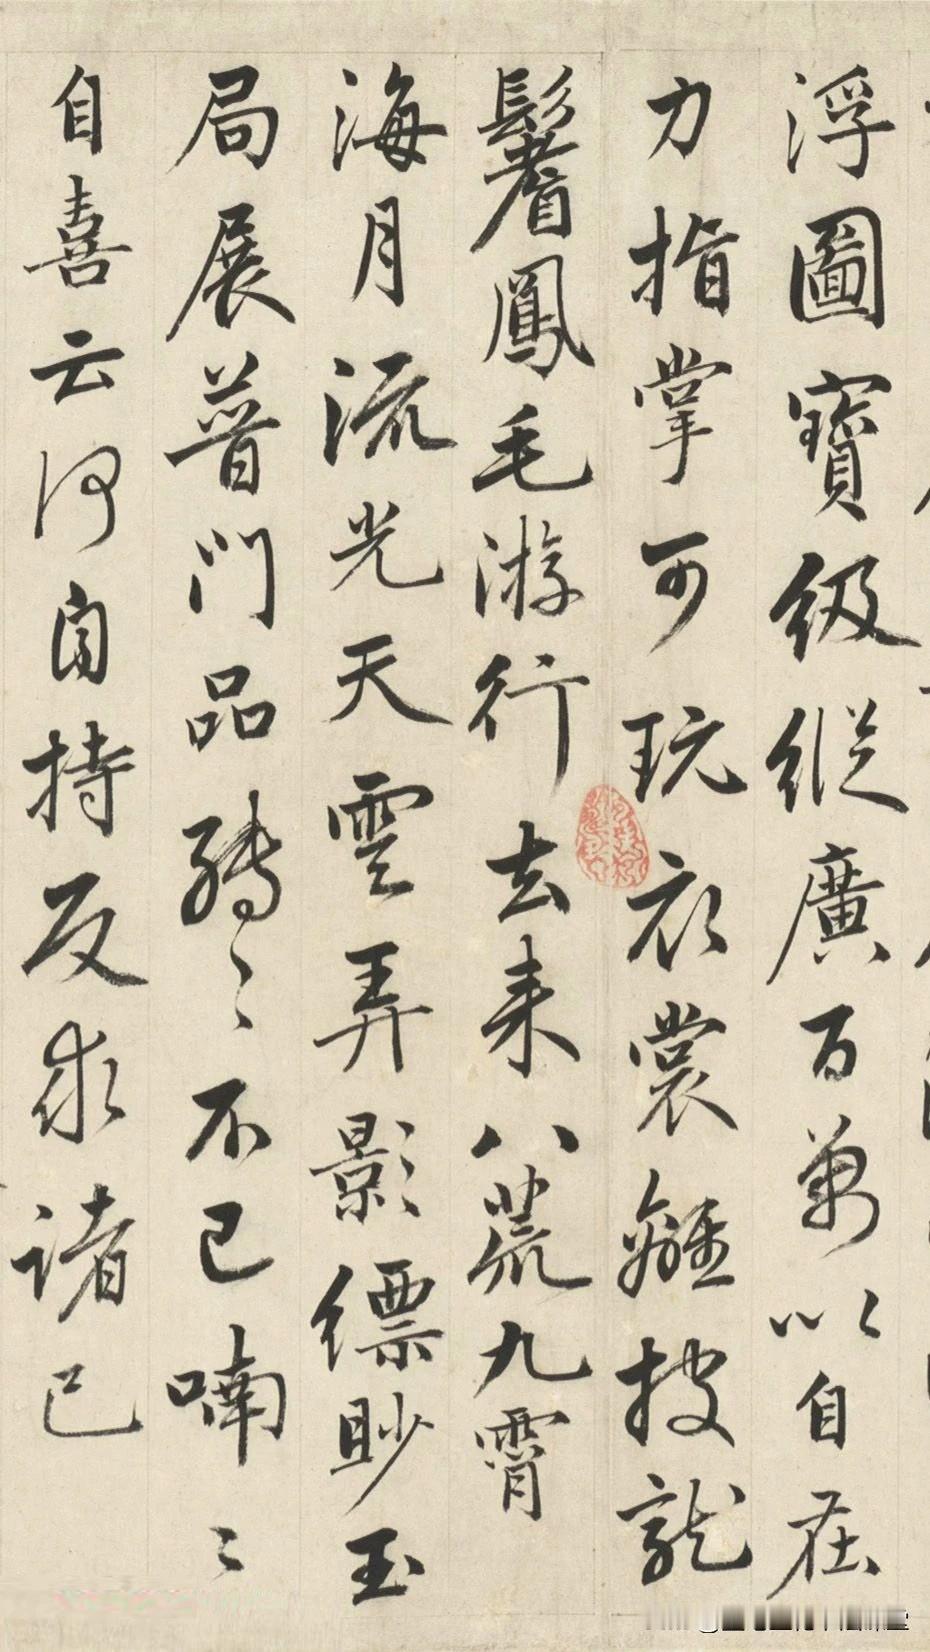 浮圖寶級縱廣百萬以自在
力指掌可玩衣裳離披龍
鬐鳳毛游行去來八荒九霄
海月流光天雲弄影縹眇玉
局展普門品轉〻不已喃〻
自喜云何自持反求諸己